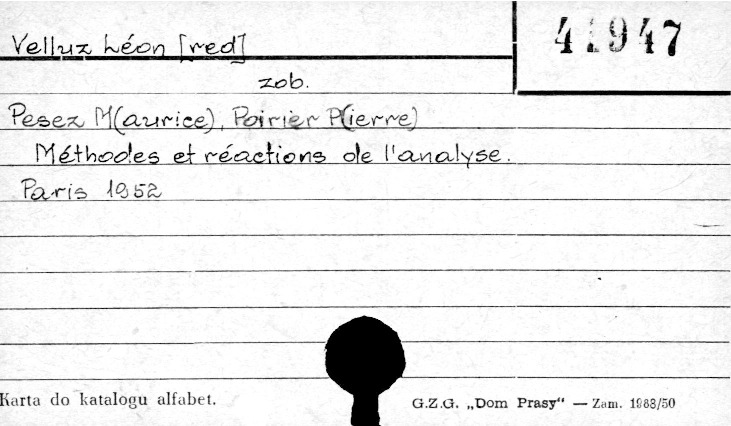 Velluz Léon [red]
41947
zob.
Pesez M(aurice), Poirier P(ierre)
Méthodes et réactions de l'analyse.
Paris 1952
Karta do katalogu alfabet.
G.Z.G. „Dom Prasy“ — Zam. 1968/50